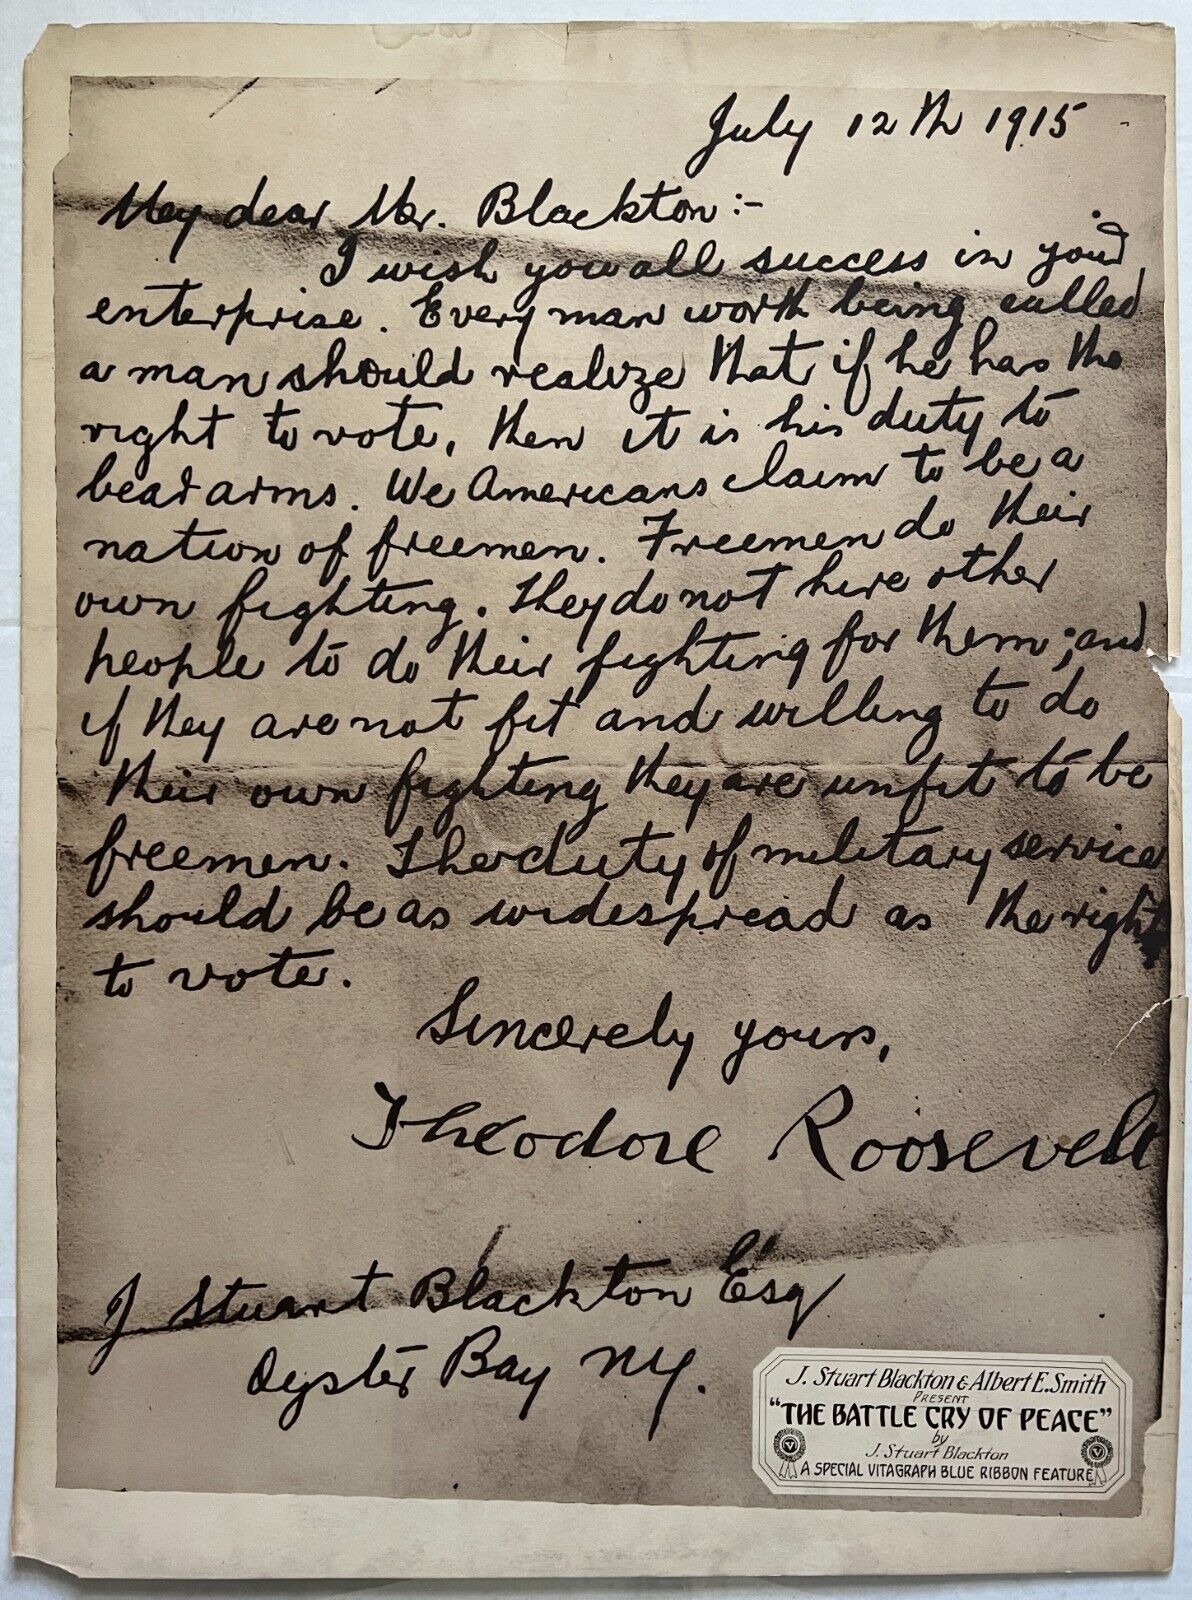 July 12th 1915
My dear Mr. Blackton:-
I wish you all success in your
enterprise. Every man worth being called
a man should realize that if he has the
right to vote, then it is his duty to
bear arms. We Americans claim to be a
nation of freemen. Freemen do their
own fighting. They do not hire other
people to do their fighting for them; and
if they are not fit and willing to do
their own fighting they are unfit to be
freemen. The duty of military service
should be as widespread as the right
to vote.
Sincerely yours,
Theodore Roosevelt
J Stuart Blackton Esq
Oyster Bay NY.
J. Stuart Blackton & Albert E. Smith
PRESENT
"THE BATTLE CRY OF PEACE"
by
J. Stuart Blackton
A SPECIAL VITAGRAPH BLUE RIBBON FEATURE
V
V